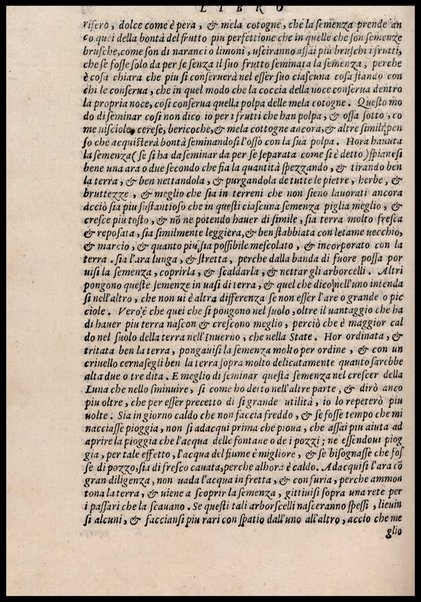 LIBRO
riferò, dolce come è pera, & mela cotogne, che la semenza prende an
co quei della bontà del frutto piu perfettione che in quelle che son semenze
brusche, come son di naranci o limoni, usciranno assai più bruschi i frutti,
che se fosse solo da per se senza il suo frutto seminata la semenza, perche
è cosa chiara che piu si conseruerà nel esser suo ciascuna cosa stando con
chi le conserua, che in quel modo che la coccia della noce conserua dentro
la propria noce, cosi conserua quella polpa delle mela cotogne. Questo mo
do di seminar cosi non dico io per i frutti che han polpa, & ossa sotto, co
me uisciole, cerese, bericoche, & mela cottogne ancora, & altre simile, pen
so che acquisterà bontà seminandosi l'osso con la sua polpa. Hora hauuta
la semenza (se si ha da seminar da per se separata come si è detto) spianesi
bene una ara o due secondo che fia la quantità spezzando, & tirando ben
la terra, & ben nettandola, & purgandola de tutte le pietre, herbe, &
bruttezze, & meglio che sia in terreni che non sieno lauorati ancora
acciò sia piu sustantioso che in questi ciascuna semenza piglia meglio, &
cresce piu tosto, & nõ ne potendo hauer di simile, sia terra molto fresca
& reposata, sia similmente leggiera, & ben stabbiata con letame uecchio,
& marcio, & quanto piu sia possibile mescolato, & incorporato con la
terra. sia l'ara lunga, & stretta, perche dalla banda di fuore possa por
uisi la semenza, coprirla, & scaldarla, & nettar gli arborcelli. Altri
pongono queste semenze in uasi di terra, & quel che dico nell'uno intenda
si nell'altro, che non ui è altra differenza se non esser l'are o grande o pic
ciole. Vero è che quei che si pongono nel suolo, oltre il uantaggio che ha
di hauer piu terra nascon & crescono meglio, perciò che è maggior cal
do nel suolo della terra nell'Inuerno, che nella State. Hor ordinata, &
tritata ben la terra, pongauisi la semenza molto per ordine, & con un
criuello cernasegli ben la terra sopra molto delicatamente quanto sarebbe
alta due o tre dita. E meglio di seminar questa semenza nel crescer della
Luna che nello sminuire, si come ho detto nell'altre parte, & dirò anco
piu oltre, che per esser precetto di si grande utilità, io lo repeterò piu
uolte. Sia in giorno caldo che non faccia freddo, & se fosse tempo che mi
nacciasse pioggia, non si adacqui prima che pioua, che assai piu aiuta ad
aprire la pioggia che l'acqua delle fontane o de i pozzi; ne essendoui piog
gia, per tale effetto, l'acqua del fiume è migliore, & se bisognasse che fos
se di pozzo, sia di fresco cauata, perche alhora è caldo. Adacquisi l'ara cõ
gran diligenza, non uada l'acqua in fretta, & con furia, perche ammon
tona la terra, & uiene a scoprir la semenza, gittiuisi sopra una rete per
i passari che la scauano. Se questi tali arborscelli nasceranno spessi, lieuin
si alcuni, & facciansi piu rari con spatio dall'uno all'altro, accio che me
glio